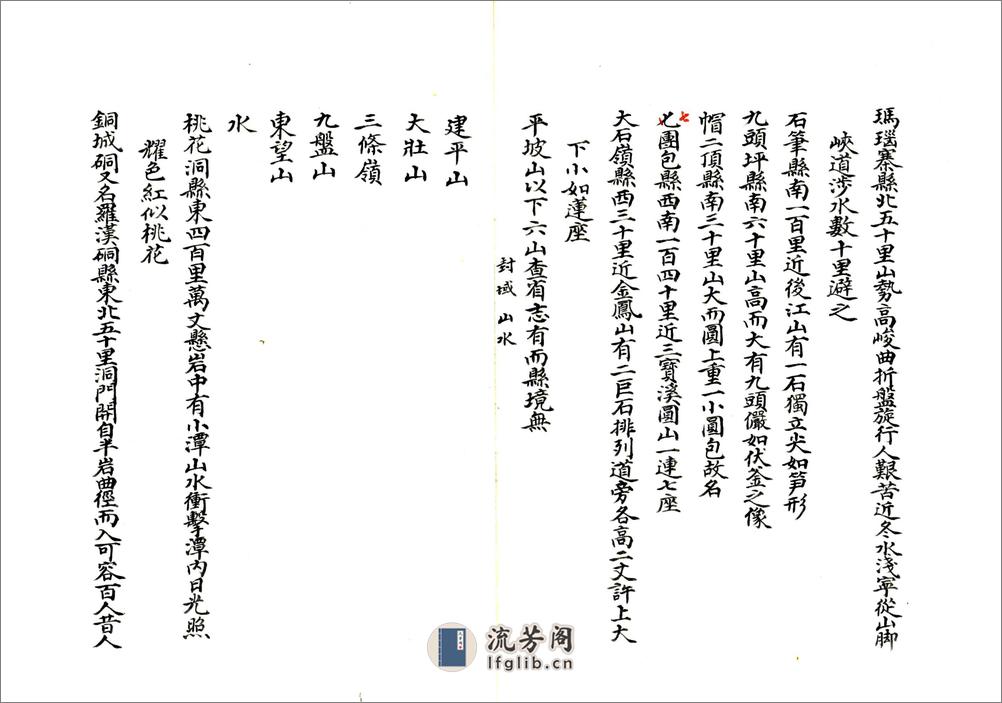 瑪瑙寨縣北五十里山勢高峻曲折盤旋行人艱苦近冬水淺寧從山脚
峽道涉水數十里避之
石筆縣南一百里近後江山有一石獨立尖如笋形
九頭坪縣南六十里山高而大有九頭儼如伏釜之像
帽二頂縣南三十里山大而圓上重一小圓包故名
七
團包縣西南一百四十里近三寶溪圓山一連七座
大石嶺縣西三十里近金鳳山有二巨石排列道旁各高二丈許上大
下小如蓮座
平坡山以下六山查省志有而縣境無
封域 山水
建平山
大壯山
三條嶺
九盤山
東望山
水
桃花洞縣東四百里萬丈懸岩中有小潭山水衝擊潭內日光照
耀色紅似桃花
銅城硐又名羅漢硐縣東北五十里洞門開自半岩曲徑而入可容百人昔人
流芳阁
lfglib.cn